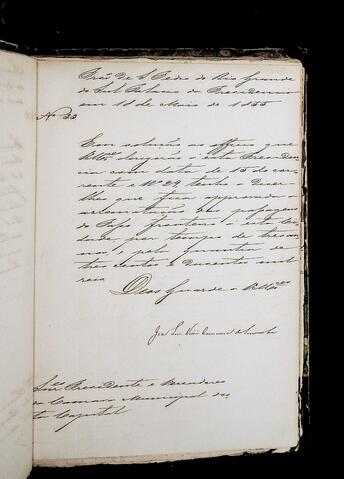 Prov.ª de S. Pedro do Rio Grande
do Sul Palacio da Presidencia
em 18 de Maio de 1855
Nº 33
Em solução ao officio que
V.Mcês dirigirão a esta Presiden-
cia com data de 15 do cor-
rente e Nº 29, tenho a dizer-
lhes que fica approvada a
arrematação das passagens
do Passo fronteiro a esta Ci-
dade, por tempo de tres an-
nos, e pela quantia de
tres contos e duzentos mil
reis.
Deos Guarde a V.Mcês
Snr.es Presidente e Vereadores
da Camara Municipal des-
ta Capital